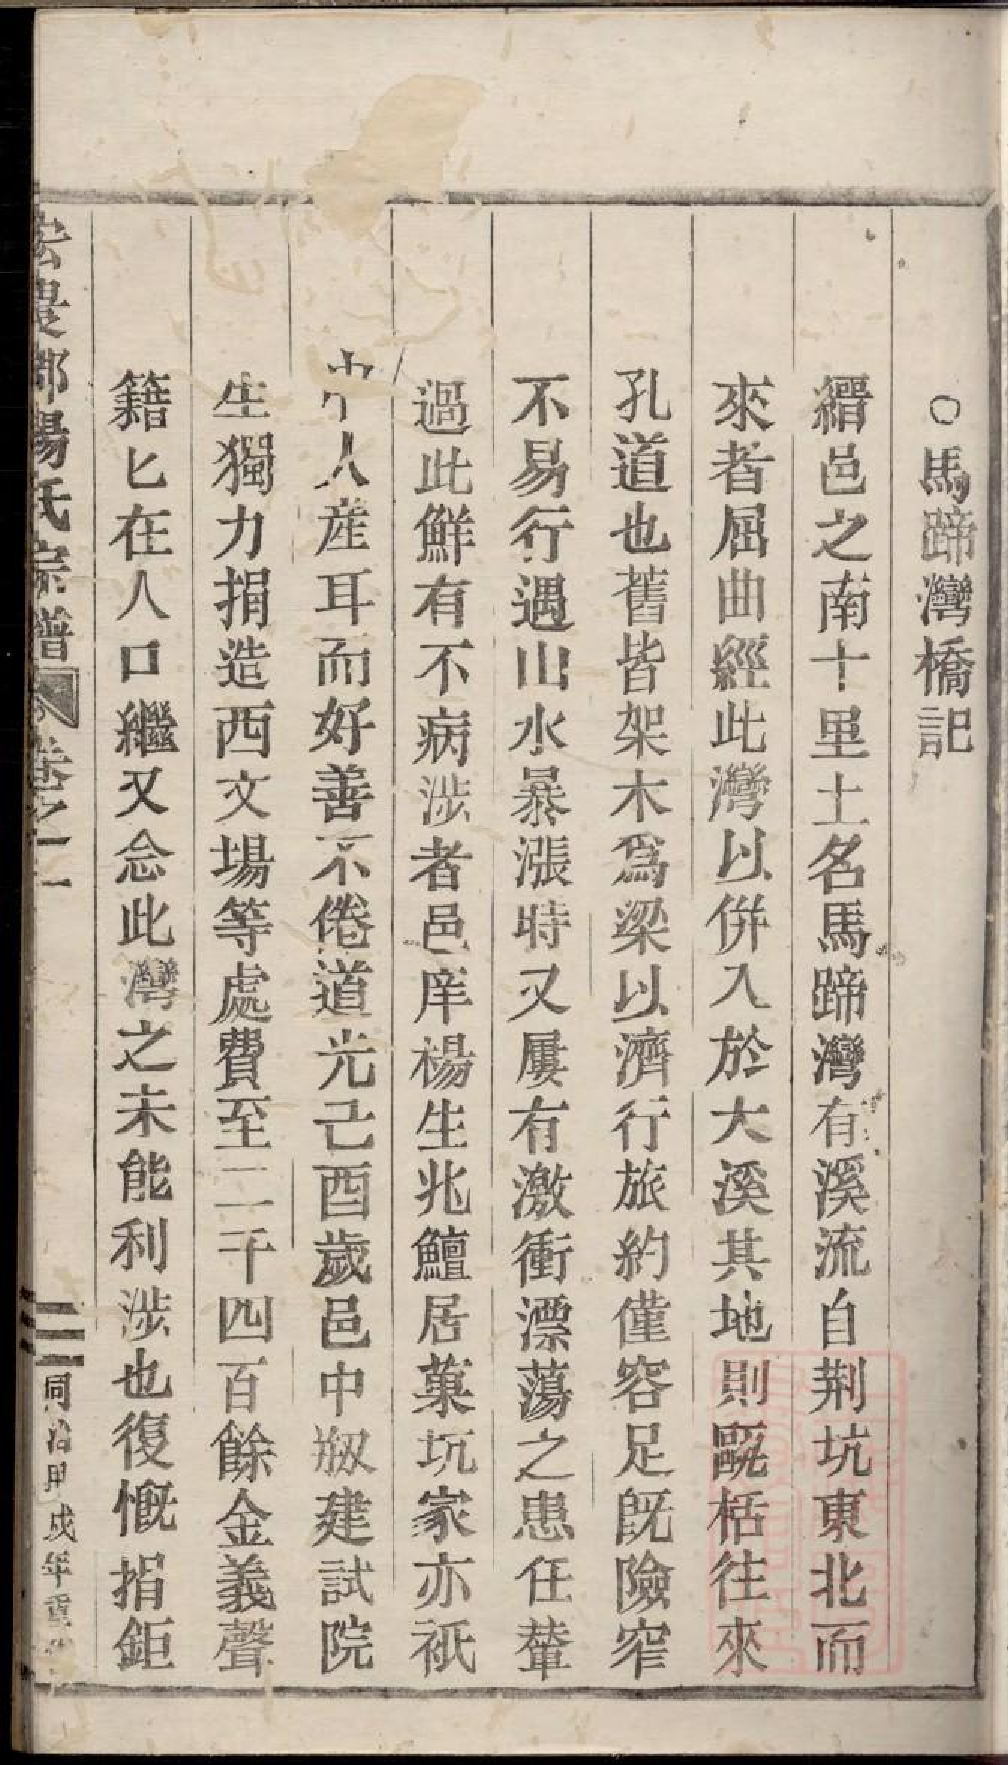 ○馬蹄灣橋記
縉邑之南十里土名馬蹄灣有溪流自荆坑東北而
來者屈曲經此灣以併入於大溪其地則甌栝往來
孔道也舊皆架木爲梁以濟行旅約僅容足既險窄
不易行遇山水暴漲時又屢有激衝漂蕩之患任輦
過此鮮有不病涉者邑庠楊生兆鱣居菓坑家亦衹
中人産耳而好善不倦道光己酉歲邑中剏建試院
生獨力捐造西文場等處費至二千四百餘金義聲
籍匕在人口繼又念此灣之未能利涉也復慨捐鉅
楊氏宗譜
卷之一
同治甲戌年重